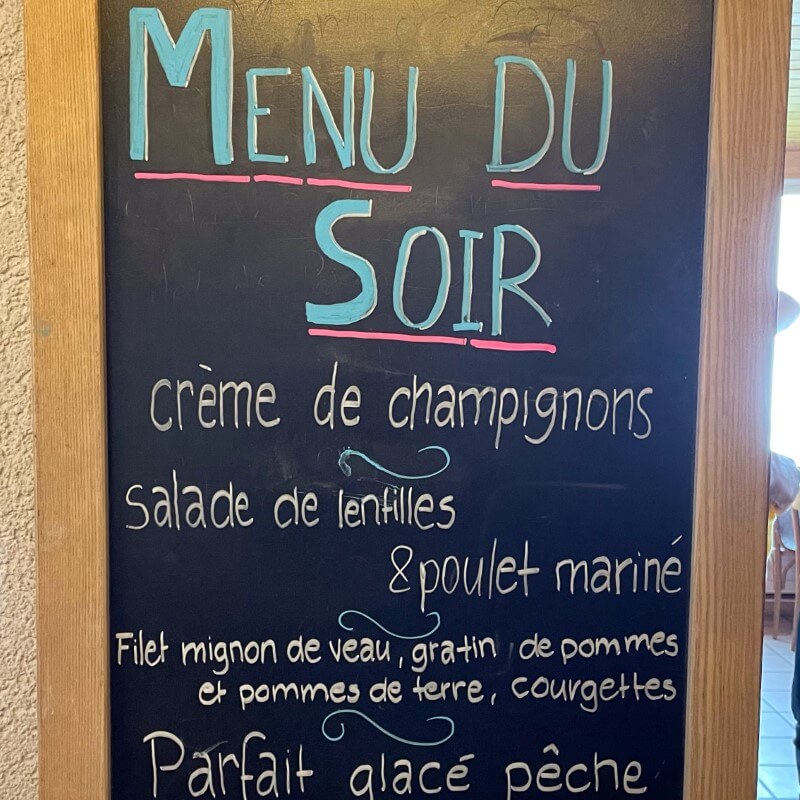 MENU DU
SOIR
crème de champignons
Salade de lentilles
& poulet mariné
Filet mignon de veau, gratin de pommes
et pommes de terre, courgettes
Parfait glacé pêche